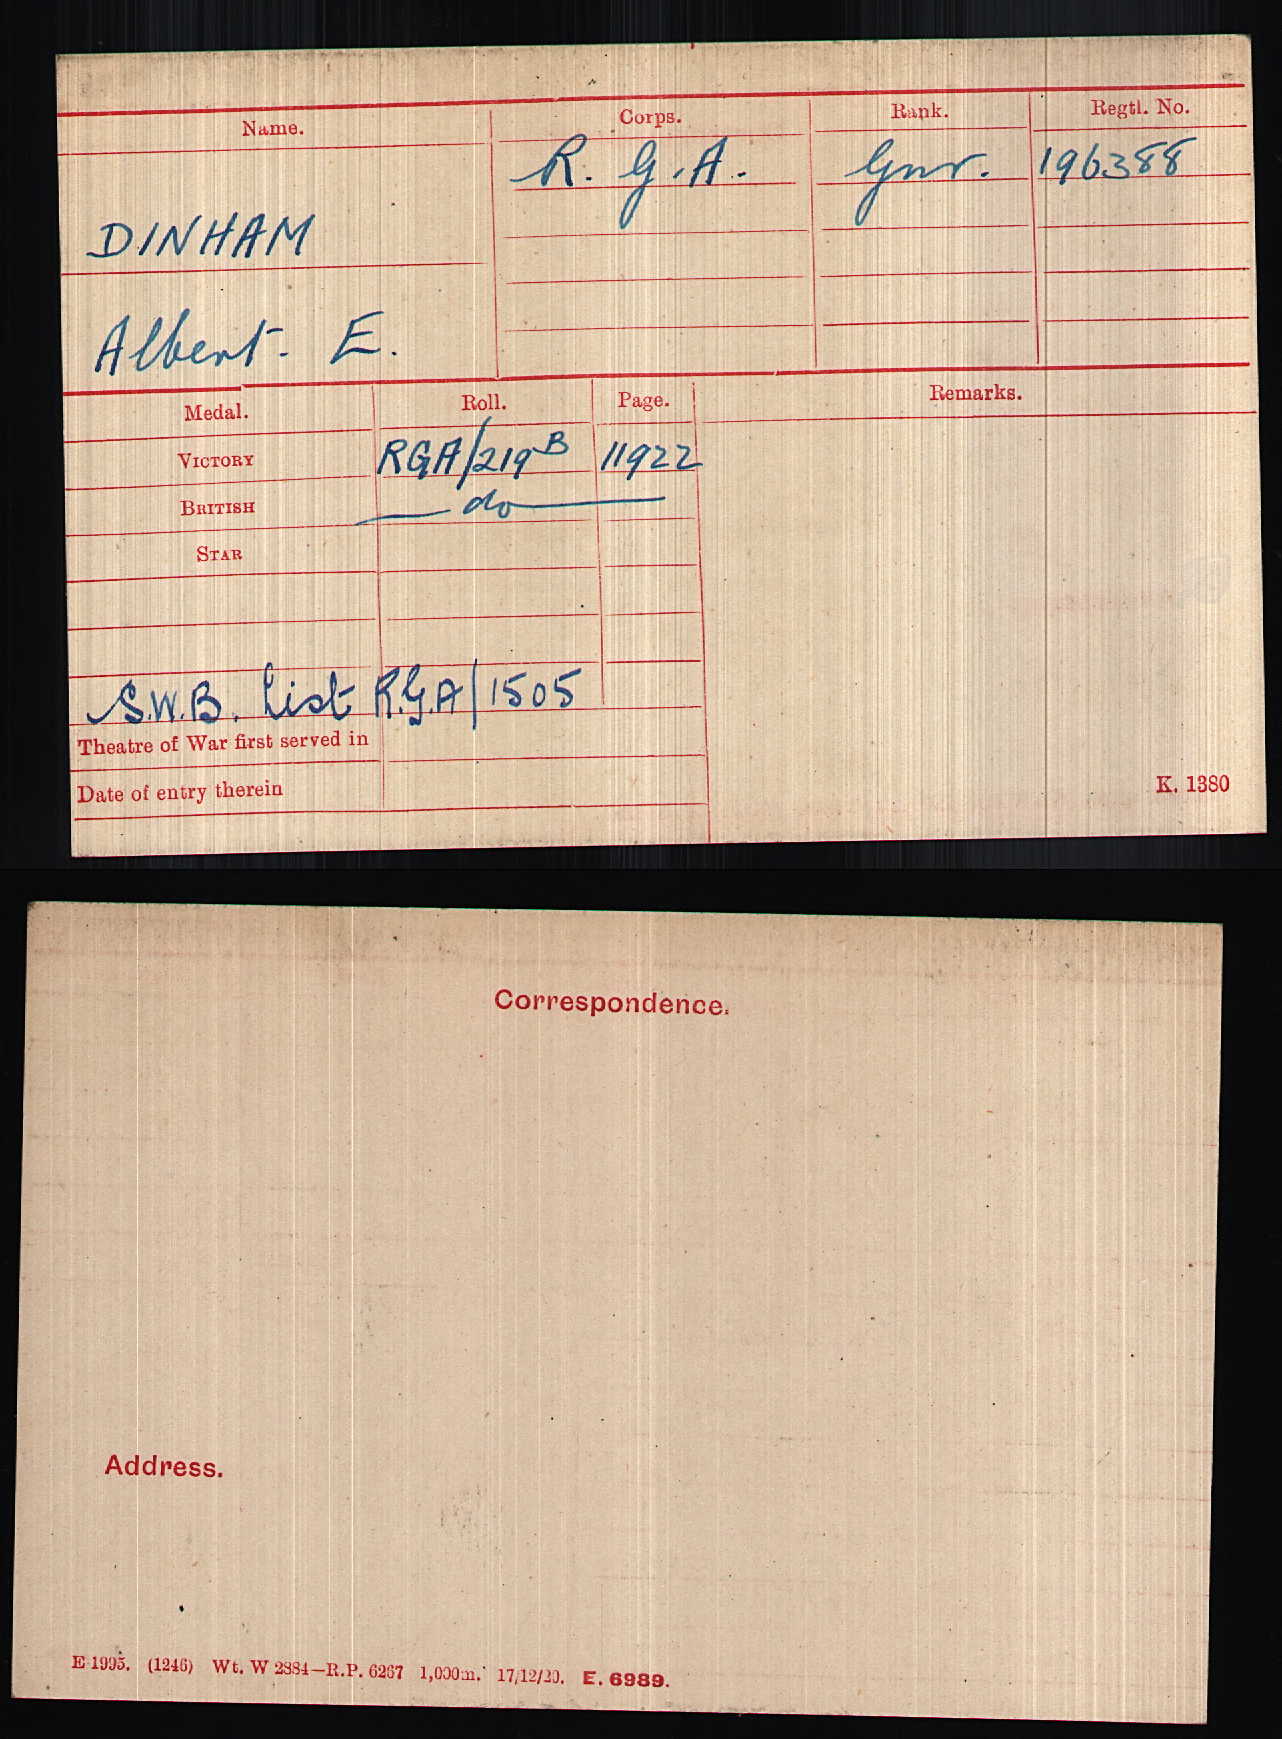 Name. Corps. Rank. Regtl. No.
R. G. A. Gnr. 196388
DINHAM
Albert. E.
Medal. Roll. Page. Remarks.
VICTORY RGA/219B 11922
BRITISH — do —
STAR
S.W.B. List R.G.A/1505
Theatre of War first served in
Date of entry therein
K. 1380
Correspondence.
Address.
E 1995. (1246) Wt. W 2884—R.P. 6267 1,000m. 17/12/20. E. 6989.